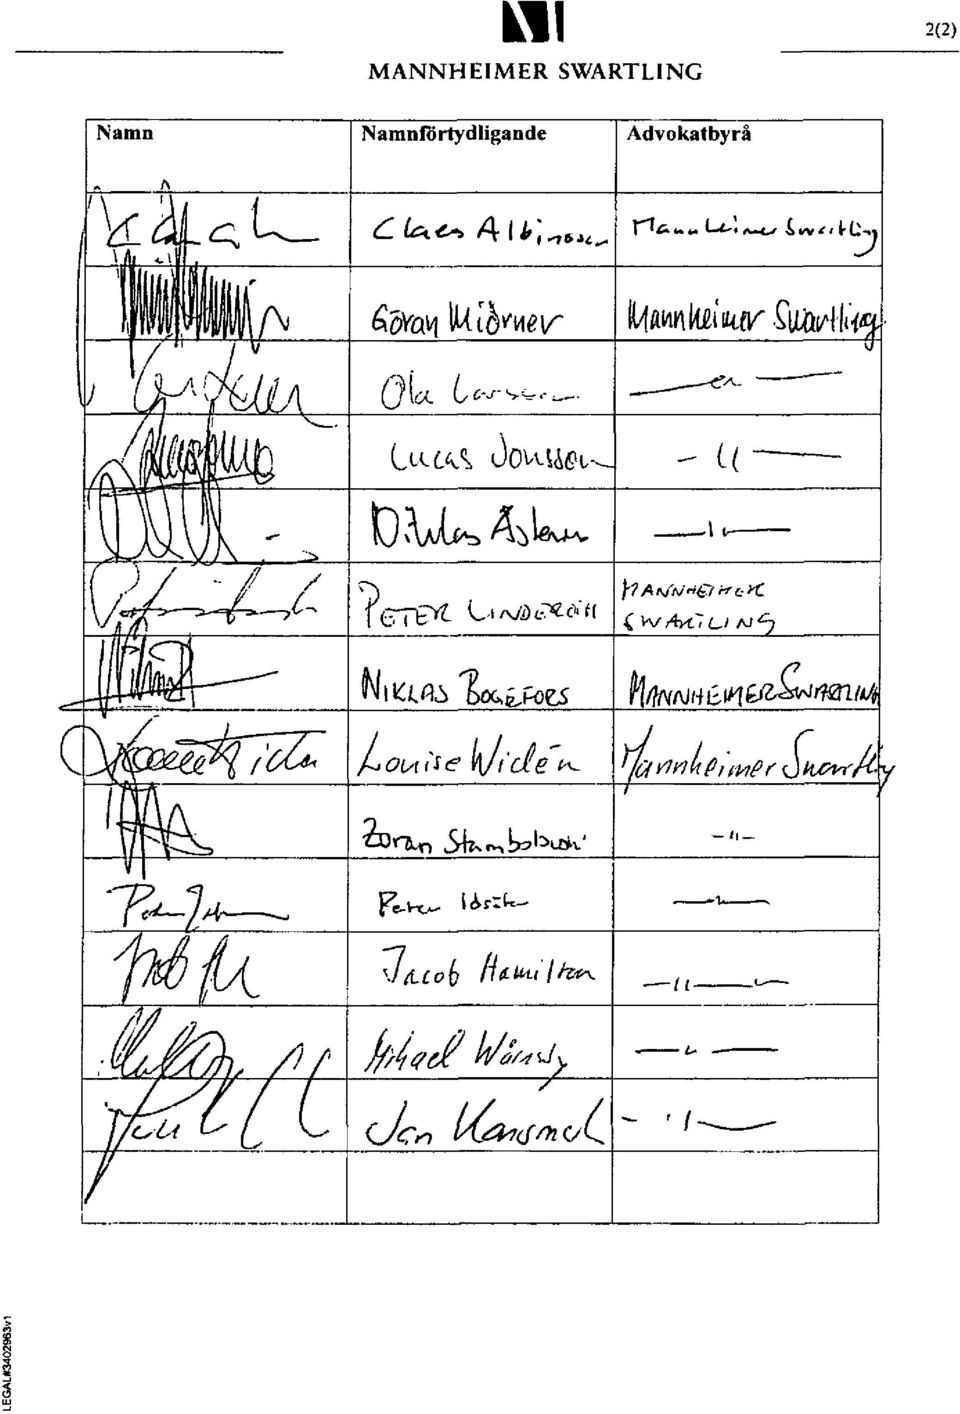 2(2)
MANNHEIMER SWARTLING
Namn Namnförtydligande Advokatbyrå
Claes Albinsson Mannheimer Swartling
Göran Miörner Mannheimer Swartling
Ola Larsson —〃—
Lucas Jonsson —〃—
Niklas Åstenius —〃—
PETER LINDEROTH MANNHEIMER
SWARTLING
NIKLAS BOGEFORS MANNHEIMER SWARTLING
Louise Widén Mannheimer Swartling
Zoran Stambolovski —〃—
Peter Idsäter —〃—
Jacob Hamilton —〃—
Mikael Wärnsby —〃—
Jan —〃—
LEGAL#3402963v1